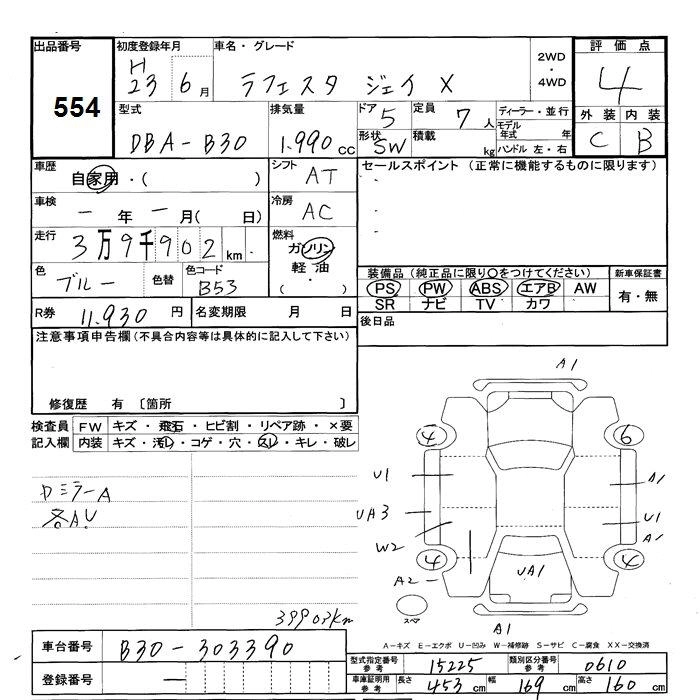 出品番号 初度登録年月 車名・グレード 評価点
554
H
23 6月 ラフェスタ ジェイ X 2WD・4WD 4
型式 排気量 ドア 定員 ディーラー・並行 外装 内装
DBA-B30 1.990cc 5 7人 モデル年式 年 C B
形状 SW 積載 kg ハンドル 左・右
車歴 自家用・( ) シフト AT セールスポイント (正常に機能するものに限ります)
車検 一年一月( 日) 冷房 AC
走行 3万9千902km 燃料 ガソリン
軽油
( ・ )
色 ブルー 色替 色コード B53
装備品 (純正品に限り○をつけてください) 新車保証書
PS PW ABS エアB AW 有・無
SR ナビ TV カワ
R券 11.930円 名変期限 月 日 後日品
注意事項申告欄 (不具合内容等は具体的に記入して下さい)
修復歴 有 〔箇所 〕
検査員 FW キズ・飛石・ヒビ割・リペア跡・×要
記入欄 内装 キズ・汚レ・コゲ・穴・スレ・キレ・破レ
ミラーA
各AU
39903km
A1
4 6
U1 A1
UA3 U1
W2
4 4
A2 UA1
スペア
A1
A-キズ E-エクボ U-凹み W-補修跡 S-サビ C-腐食 XX-交換済
車台番号 B30-303390
登録番号 一
型式指定番号 参考 15225 類別区分番号 参考 0610
車庫証明用 参考 長さ 453cm 幅 169cm 高さ 160cm